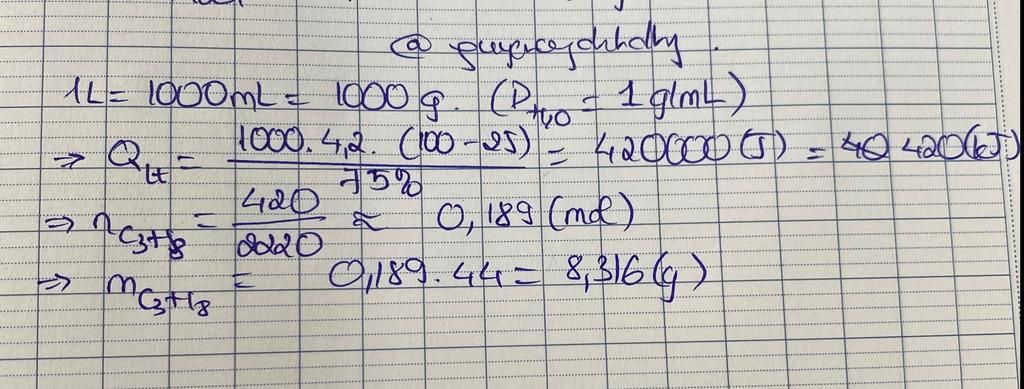 1L = 1000mL = 1000 g. (D_H₂O = 1 g/mL)
⇒ Q_lt = \frac{1000.4,2.(100-25)}{75%} = 420000(J) = 420(kJ)
⇒ n_C₃H₈ = \frac{420}{2220} ≈ 0,189 (mol)
⇒ m_C₃H₈ = 0,189.44 = 8,316(g)